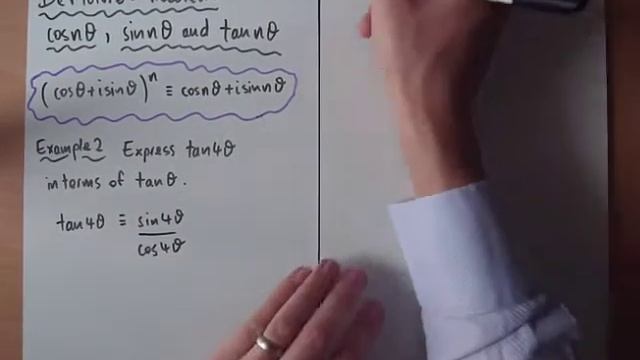 cosnθ, sinnθ and tannθ
(cosθ+isinθ)ⁿ ≡ cosnθ+isinnθ
Example 2 Express tan4θ
in terms of tanθ.
tan4θ ≡ sin4θ
cos4θ